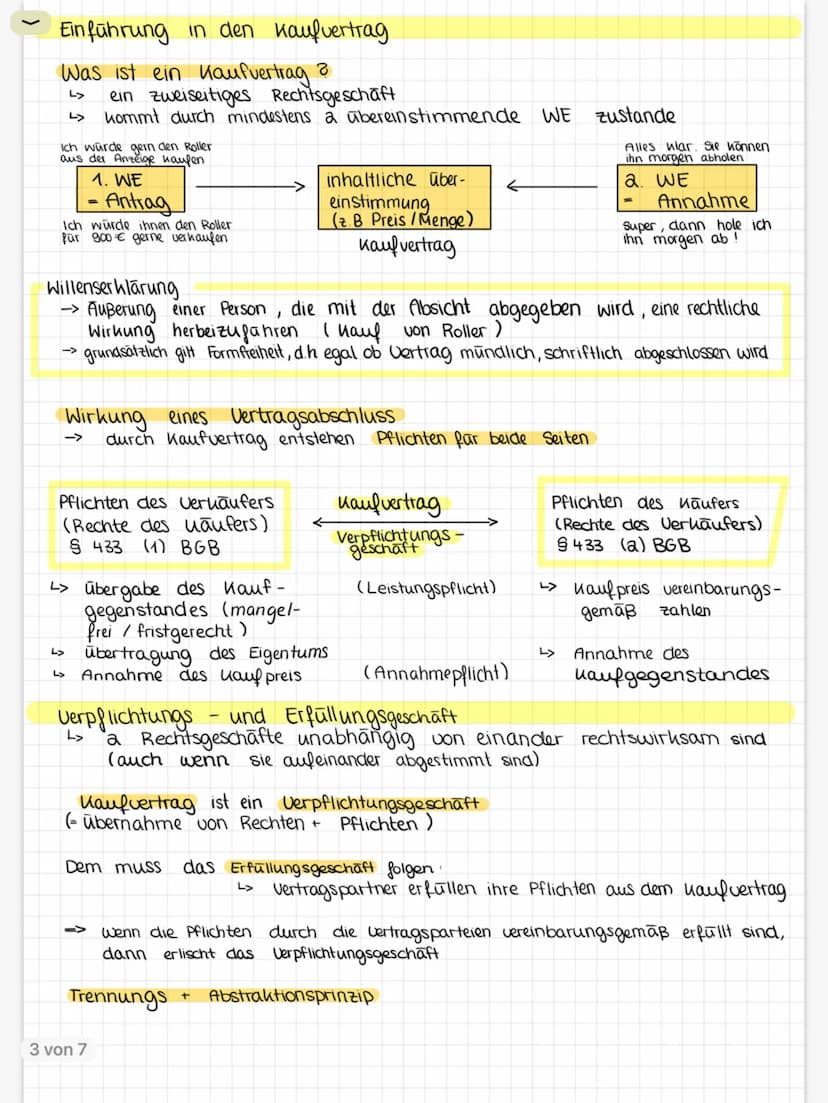 Einführung in den Kaufvertrag
Was ist ein Kaufvertrag?
↳ ein zweiseitiges Rechtsgeschäft
↳ kommt durch mindestens 2 übereinstimmende WE zustande
Ich würde gern den Roller
aus der Anzeige kaufen
1. WE
= Antrag
Ich würde ihnen den Roller
für 900€ gerne verkaufen
inhaltliche über-
einstimmung
(z.B Preis/Menge)
Kaufvertrag
Alles klar. Sie können
ihn morgen abholen
2. WE
= Annahme
super, dann hole ich
ihn morgen ab!
Willenserklärung
→ Äußerung einer Person, die mit der Absicht abgegeben wird, eine rechtliche
Wirkung herbeizuführen (Kauf von Roller)
→ grundsätzlich gilt Formfreiheit, d.h egal ob Vertrag mündlich, schriftlich abgeschlossen wird
Wirkung eines Vertragsabschluss
→ durch Kaufvertrag entstehen Pflichten für beide Seiten
Pflichten des Verkäufers
(Rechte des Käufers)
§ 433 (1) BGB
Kaufvertrag
Verpflichtungs-
geschäft
Pflichten des Käufers
(Rechte des Verkäufers)
§ 433 (2) BGB
↳ übergabe des Kauf-
gegenstandes (mangel-
frei / fristgerecht)
↳ übertragung des Eigentums
↳ Annahme des Kaufpreis
(Leistungspflicht)
(Annahmepflicht)
↳ Kaufpreis vereinbarungs-
gemäß zahlen
↳ Annahme des
Kaufgegenstandes
Verpflichtungs - und Erfüllungsgeschäft
↳ 2 Rechtsgeschäfte unabhängig von einander rechtswirksam sind
(auch wenn sie aufeinander abgestimmt sind)
Kaufvertrag ist ein Verpflichtungsgeschäft
(= übernahme von Rechten + Pflichten)
Dem muss das Erfüllungsgeschäft folgen.
↳ Vertragspartner erfüllen ihre Pflichten aus dem Kaufvertrag
=> wenn die Pflichten durch die Vertragsparteien vereinbarungsgemäß erfüllt sind,
dann erlischt das Verpflichtungsgeschäft
Trennungs + Abstraktionsprinzip
3 von 7